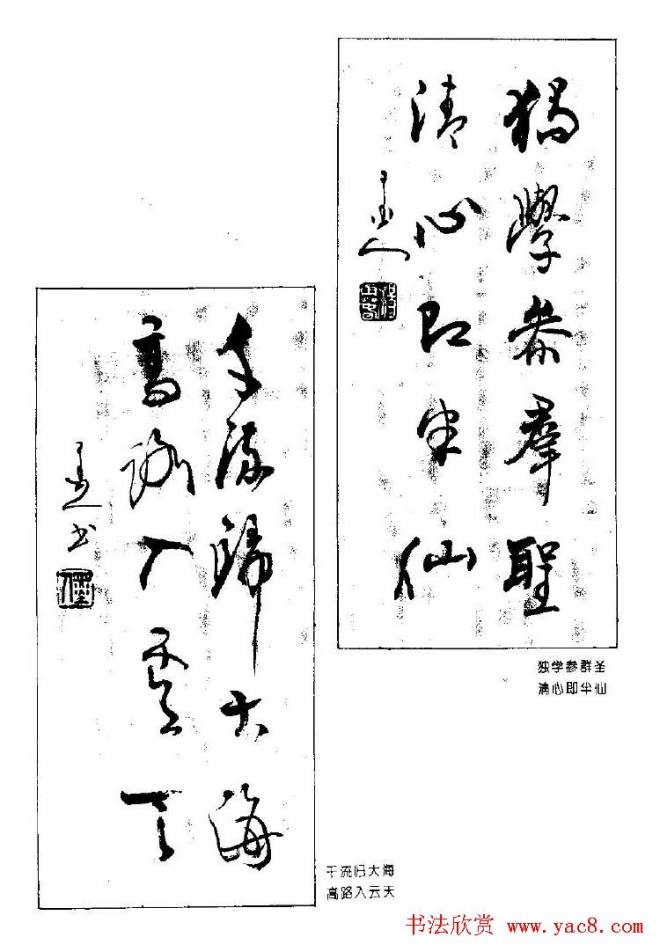 獨學參羣聖
清心即半仙
独学参群圣
清心即半仙
千流歸大海
高路入雲天
千流归大海
高路入云天
书法欣赏 www.yac8.com